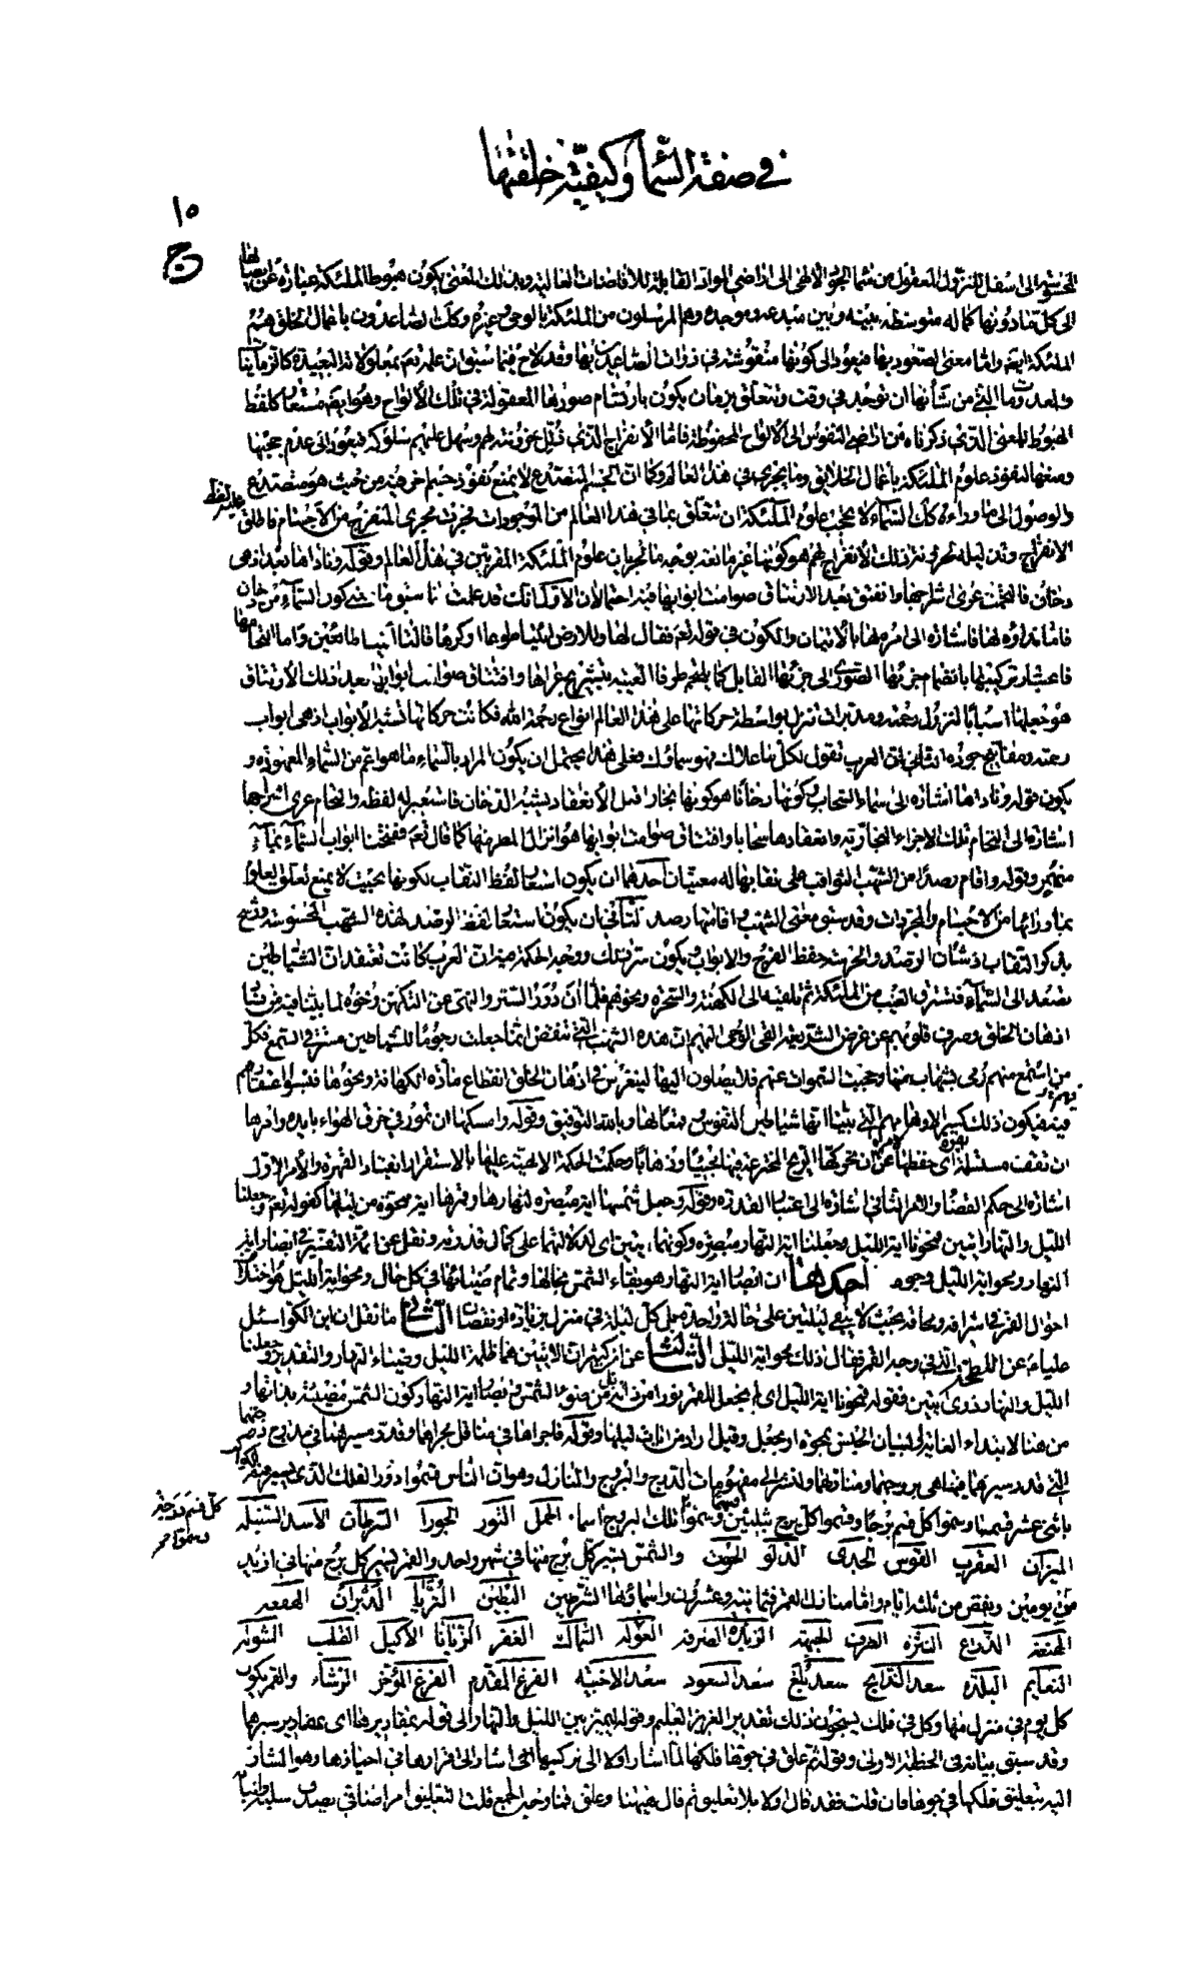 في صفة السماء وكيفية خلقتها
١٥
ج
المحسوسة إلى أسفل للنزول المعقول من سماء الجود الالهى إلى أراضى المواد القابلة للافاضات العالية وبذلك المعنى يكون هبوط الملئكة عبارة عن ايصالها
إلى كل ما دونها كماله متوسطة بينه وبين مبدعه وموجده وهم المرسلون من الملئكة بالوحى وغيره وكذلك الصاعدون باعمال الخلق هم
الملئكة ايضا واما معنى الصعود بها فيعود إلى كونها منقوشة في ذوات الصاعدين بها وقد لاح فيما سبق ان علمه تعم بمعلولاته البعيدة كالزمانيات
والمعدومات التي من شأنها ان توجد في وقت وتتعلق بزمان يكون بارتسام صورها المعقولة في تلك الألواح وهو ايضا مستعار كلفظ
الهبوط للمعنى الذي ذكرناه من اراضى النفوس إلى الألواح المحفوظة فاما الانفراج الذي ذلل حزونته لهم وسهل عليهم سلوكه فيعود إلى عدم حجبها
ومنعها لنفوذ علوم الملئكة باعمال الخلايق وما يجرى في هذا العالم وكما ان الجسم المتصدع لا يمنع نفوذ جسم اخر فيه من حيث هو متصدع
والوصول إلى ما وراءه كذلك السماء لا تحجب علوم الملئكة ان تتعلق بما في هذا العالم من الموجودات فجرت مجرى المنفرج من الاجسام فاطلق
عليه لفظ
الانفراج وتذليله لحزونة ذلك الانفراج لهم هو كونها غير مانعة بوجه ما لجريان علوم الملئكة المقربين في هذا العالم وقوله وناداها بعد اذ هى
دخان فالتحمت عرى اشراجها وافتتق بعد الارتتاق صوامت ابوابها فيه احتمالان الاول انك قد علمت ما سبق من كون السماء من دخان
فاما نداؤه لها فاشارة إلى امره لها بالاتيان والكون في قوله تعم فقال لها وللارض ائتيا طوعا او كرها قالتا اتينا طائعين واما التحامها
فاعتبار تركيبها بانضمام جزئها الصورى إلى جزئها القابل كما يلتحم طرفا العيبة بتشريج عراها وافتتاق صوامت ابوابها بعد ذلك الارتتاق
هو جعلها اسبابا لنزول رحمته ومدبرات تنزل بواسطة حركاتها على هذا العالم انواع رحمة الله فكانت حركاتها تشبه الابواب اذ هى ابواب
رحمته ومفاتيح جوده الثاني ان العرب تقول لكل ما علاك فهو سماؤك فعلى هذا يحتمل ان يكون المراد بالسماء ما هو اعم من السماء المعهودة و
يكون قوله وناداها اشارة إلى سماء السحاب وكونها دخانا هو كونها بخارا قبل الانعقاد يشبه الدخان فاستعير له لفظه والتحام عرى اشراجها
اشارة إلى التحام تلك الاجزاء البخارية وانعقادها سحابا وافتتاق صوامت ابوابها هو انزال المطر منها كما قال تعم ففتحنا ابواب السماء بماء
منهمر وقوله واقام رصدا من الشهب الثواقب على نقابها له معنيان احدهما ان يكون استعار لفظ النقاب لكونها بحيث لا يمنع تعلق العلوم
بما وراءها من الاجسام والمجردات وقد سبق معنى الشهب واقامتها رصدا الثاني ان يكون استعار لفظ الرصد لهذه الشهب المحسوسة ورشح
بذكر النقاب اذ شأن الرصد والحرسة حفظ الفرج والابواب ويكون سر ذلك ووجه الحكمة فيه ان العرب كانت تعتقد ان الشياطين
تصعد إلى السماء فتسترق الغيب من الملئكة ثم تلقيه إلى الكهنة والسحرة ونحوهم فلما آن دور الستر والنهى عن التكهن ونحوه لما بينا فيه من فساد
اذهان الخلق وصرف قلوبهم عن غرض الشريعة القى الوحى اليهم ان هذه الشهب التي تنقض انما جعلت رجوما للشياطين مسترقى السمع فكل
من استمع منهم رمى بشهاب منها وحجبت السموات عنهم فلا يصلون اليها لينغرس في اذهان الخلق انقطاع مادة الكهانة ونحوها فينسوا اعتقادهم
فيهم
فيه فيكون ذلك كسرا لاوهامهم التي بينا انها شياطين النفوس وقمعا لها وبالله التوفيق وقوله وامسكها ان تمور في خرق الهواء بايده وامرها
ان تقف مستسلمة لامره اى حفظها عن ان تحركها الريح المخترقة فيها مجيئا وذهابا وحكمت الحكمة الالهية عليها بالاستقرار انقيادا لقهره والأمر الاول
اشارة إلى حكم القضاء والامر الثاني اشارة إلى اعتبار القدرة وقوله وجعل شمسها اية مبصرة لنهارها وقمرها اية ممحوة من ليلها كقوله تعم وجعلنا
الليل والنهار ايتين فمحونا اية الليل وجعلنا اية النهار مبصرة وكونهما ايتين اى لدلالتهما على كمال قدرته ونقل عن ائمة التفسير في ابصار اية
النهار ومحو اية الليل وجوه احدها ان ابصار اية النهار هو بقاء الشمس بحالها وتمام ضيائها في كل حال ومحو اية الليل هو اختلاف
احوال القمر في اشراقه ومحاقه بحيث لا يبقى ليلتين على حالة واحدة بل كل ليلة في منزل بزيادة او نقصان الثاني ما نقل ان ابن الكوا سئل
عليا عم عن اللطخة التي في وجه القمر فقال ذلك محو اية الليل الثالث عن ابن كثير ان الايتين هما ظلمة الليل وضياء النهار والتقدير وجعلنا
الليل والنهار ذوى ايتين فقوله فمحونا اية الليل اى لم نجعل للقمر نورا من ذاته بل من ضوء الشمس وابصار اية النهار كون الشمس مضيئة بذاتها و
من هنا لابتداء الغاية او لبيان الجنس بمحوه او بجعل وقيل اراد من ايات ليلها وقوله فاجراهما في مناقل مجراهما وقدر مسيرهما في مدارج درجهما
التي قدر سيرهما فيها هى بروجهما ومنازلهما ولنشر إلى مفهومات الدرج والبروج والمنازل وهو ان الناس قسموا دور الفلك الذي يسير فيه الكواكب
باثنى عشر قسما وسموا كل قسم برجا وقسموا كل برج بثلثين قسما وسموا تلك البروج اسماء الحمل الثور الجوزا السرطان الاسد السنبلة
كل قسم درجة
الميزان العقرب القوس الجدى الدلو الحوت والشمس تسير كل برج منها في شهر واحد والقمر يسير كل برج منها في ازيد
من يومين وينقص من ثلثة ايام واما منازل القمر فثمانية وعشرون واسماؤها الشرطين البطين الثريا الدبران الهقعه
الهنعه الذراع النثره الطرف الجبهه الزبره الصرفه العوا السماك الغفر الزبانا الاكليل القلب الشوله
النعايم البلده سعد الذابح سعد بلع سعد السعود سعد الاخبيه الفرغ المقدم الفرغ المؤخر الرشاء والقمر يكون
كل يوم في منزل منها وكل في فلك يسبحون ذلك تقدير العزيز العليم وقوله ليميز بين الليل والنهار إلى قوله بمقاديرهما اى بمقادير سيرهما
وقد سبق بيانه في الخطبة الاولى وقوله ثم علق في جوها فلكها لما اشار اولا إلى تركيبها اشار إلى قرارها في احيازها وهو المشار
اليه بتعليق فلكها في جوها فان قلت فقد قال اولا بلا تعليق ثم قال هيهنا وعلق فما وجه الجمع قلت التعليق امر اضافي يصدق سلبه واثباته